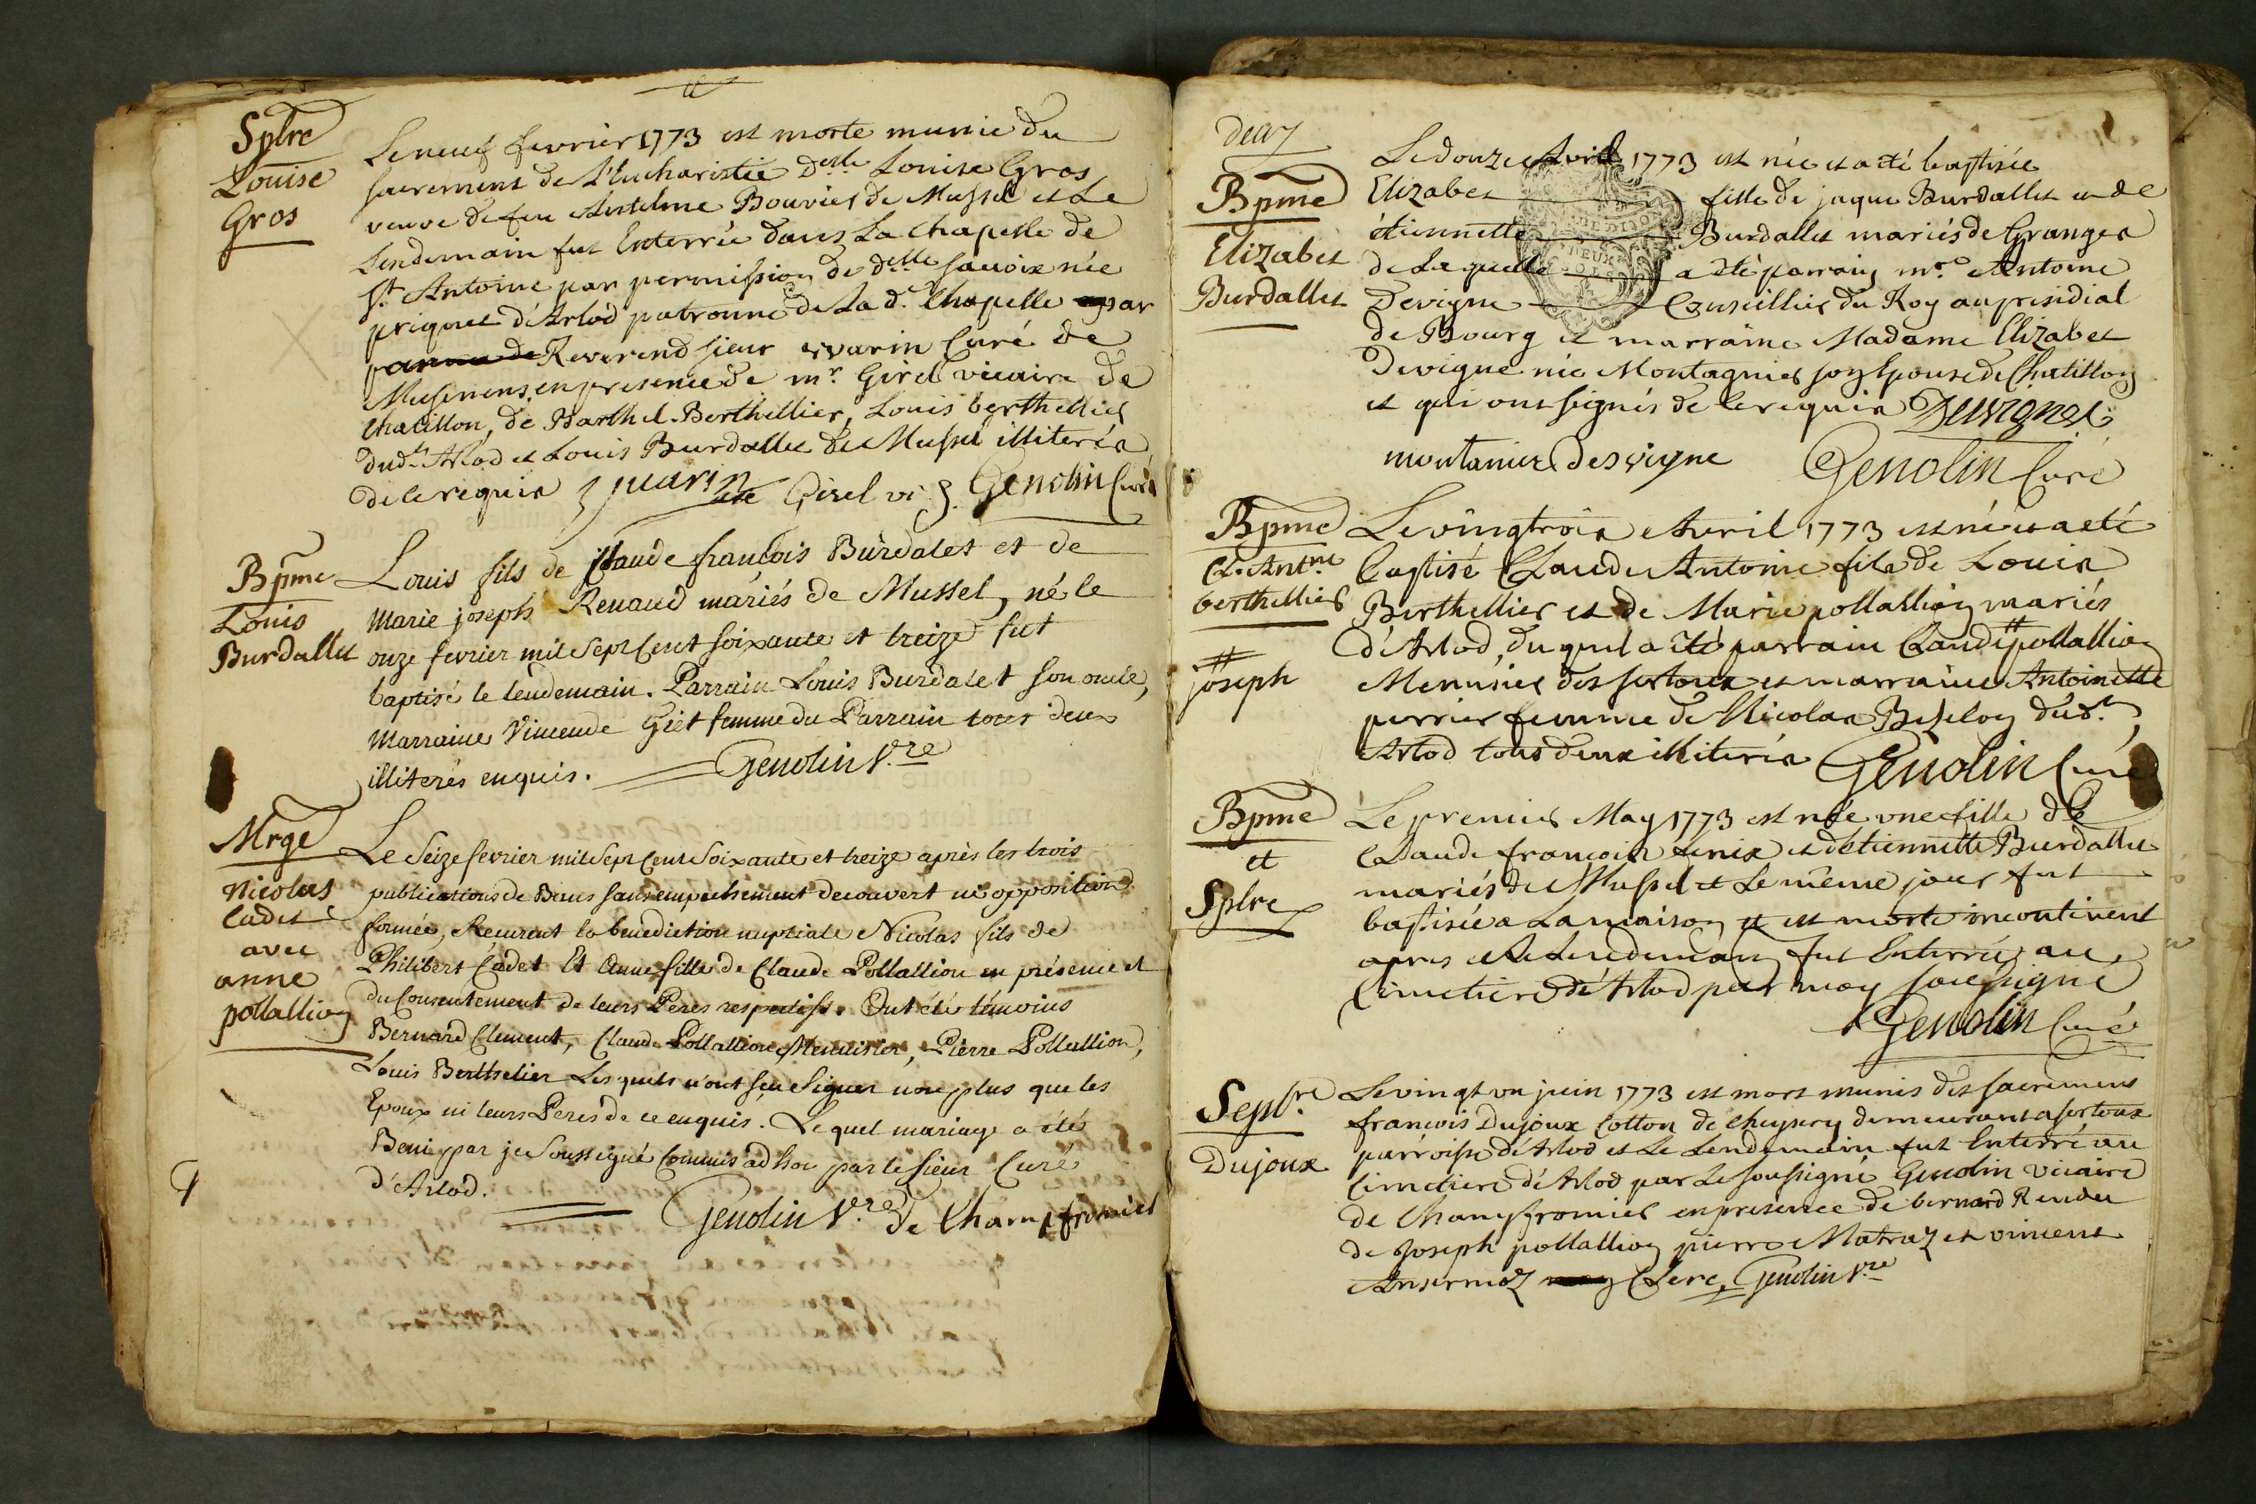 Splre
Louise
Gros
Le neuf fevrier 1773 est morte munie du
sacrement de L'Eucharistie D.elle Louise Gros
veuve de feu Anthelme Bouvier de Mussel et Le
Lendemain fut Enterrée dans La Chapelle de
St. Antoine par permission de delle savoix née
priquet d'Arlod patronne de La de. Chapelle par
Reverend sieur evarin Curé de
Musinens, en presence de mr. Girel vicaire de
chatillon, de Barthel. Berthellier, Louis berthellier
dudt. Arlod et Louis Burdallet de Mussel illiterés
de ce requis juarin curé Girel vi. Genolin Curé
Bpme
Louis
Burdallet
Louis fils de Claude françois Burdalet et de
Marie joseph Renaud mariés de Mussel, né le
onze fevrier mil Sept Cent soixante et treize fut
baptisé le lendemain. Parrain Louis Burdalet son oncle,
Marraine Vincende Giet femme du Parrain tous deux
illiterés enquis. Genolin V.re
Mrge
Nicolas
Cadet
avec
anne
pollallion
Le Seize fevrier mil Sept Cent Soixante et treize après les trois
publications de Bans sans empechement decouvert ni opposition
formée, Recurent la benediction nuptiale Nicolas fils de
Philibert Cadet Et Anne fille de Claude Pollallion en présence et
du Consentement de leurs Peres respectifs. Ont été témoins
Bernard Clement, Claude Pollallion Menuisier, Pierre Pollallion,
Louis Berthelier Lesquels n'ont sçu Signer non plus que les
Epoux ni leurs Peres de ce enquis. Lequel mariage a été
Beni par je Soussigné Commis ad hoc par le sieur Curé
d'Arlod.
Genolin V.re de Champfromier
deux
Bpme
Elizabet
Burdallet
Le douze Avril 1773 est née et a été baptisée
Elizabet fille de jaque Burdallet et de
étiennette Burdallet mariés de Granges
de Laquelle a été parrain mre. Antoine
Devigne Conseillier du Roy au presidial
de Bourg et marraine Madame Elizabet
Devigne née Montagnier son Epouse de Chatillon
et qui ont signés de ce requis Desvignes
montanier Desvigne Genolin Curé
Bpme
Cl. Antne
berthellier
#
joseph
Le vingtrois Avril 1773 est né et a eté
baptisé Claude Antoine fils de Louis
Berthellier et de Marie pollallion mariés
d'Arlod, duquel a été parrain Claude # pollallion
Menusier des sertoux et marraine Antoinette
perrier femme de Nicolas Besson dudt.
Arlod tous deux illiterés Genolin Curé
Bpme
et
Splre
Le premier May 1773 est née une fille de
Claude françois fenix et d'étiennette Burdallet
mariés de Mussel et Le même jour fut
baptisée a La maison et est morte incontinent
apres et Le Lendemain fut Enterrée au
Cimetiere d'Arlod par moy soussigné
Genolin Curé
Sepultre
Dujoux
Le vingt un juin 1773 est mort munis des sacremens
françois Dujoux Cotton de Cheysery demeurant a sertoux
parroisse d'Arlod et Le Lendemain fut Enterré au
Cimetiere d'Arlod par Le soussigné Genolin vicaire
de Champfromier en presence de bernard Rendu
de Joseph pollallion pierre Matraz et vincent
Ansermoz Clerc, Genolin V.re